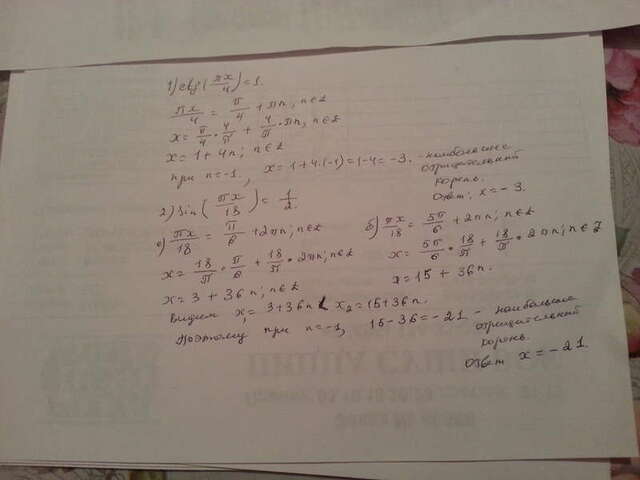 1) ctg(πx/4) = 1.
πx/4 = π/4 + πn, n∈Z
x = π/4 · 4/π + 4/π · πn, n∈Z
x = 1 + 4n; n∈Z
при n=-1, x = 1+4·(-1) = 1-4 = -3. - наибольшее
отрицательный
корень.
Ответ: x = -3.
2) sin(πx/18) = 1/2.
а) πx/18 = π/6 + 2πn; n∈Z
x = 18/π · π/6 + 18/π · 2πn; n∈Z
x = 3 + 36n; n∈Z
б) πx/18 = 5π/6 + 2πn; n∈Z
x = 5π/6 · 18/π + 18/π · 2πn; n∈Z
x = 15 + 36n.
Видим x₁ = 3+36n < x₂ = 15+36n.
Поэтому при n=-1, 15-36 = -21 - наибольшие
отрицательный
корень.
ответ x = -21.
ПИЦЦА СУШИ